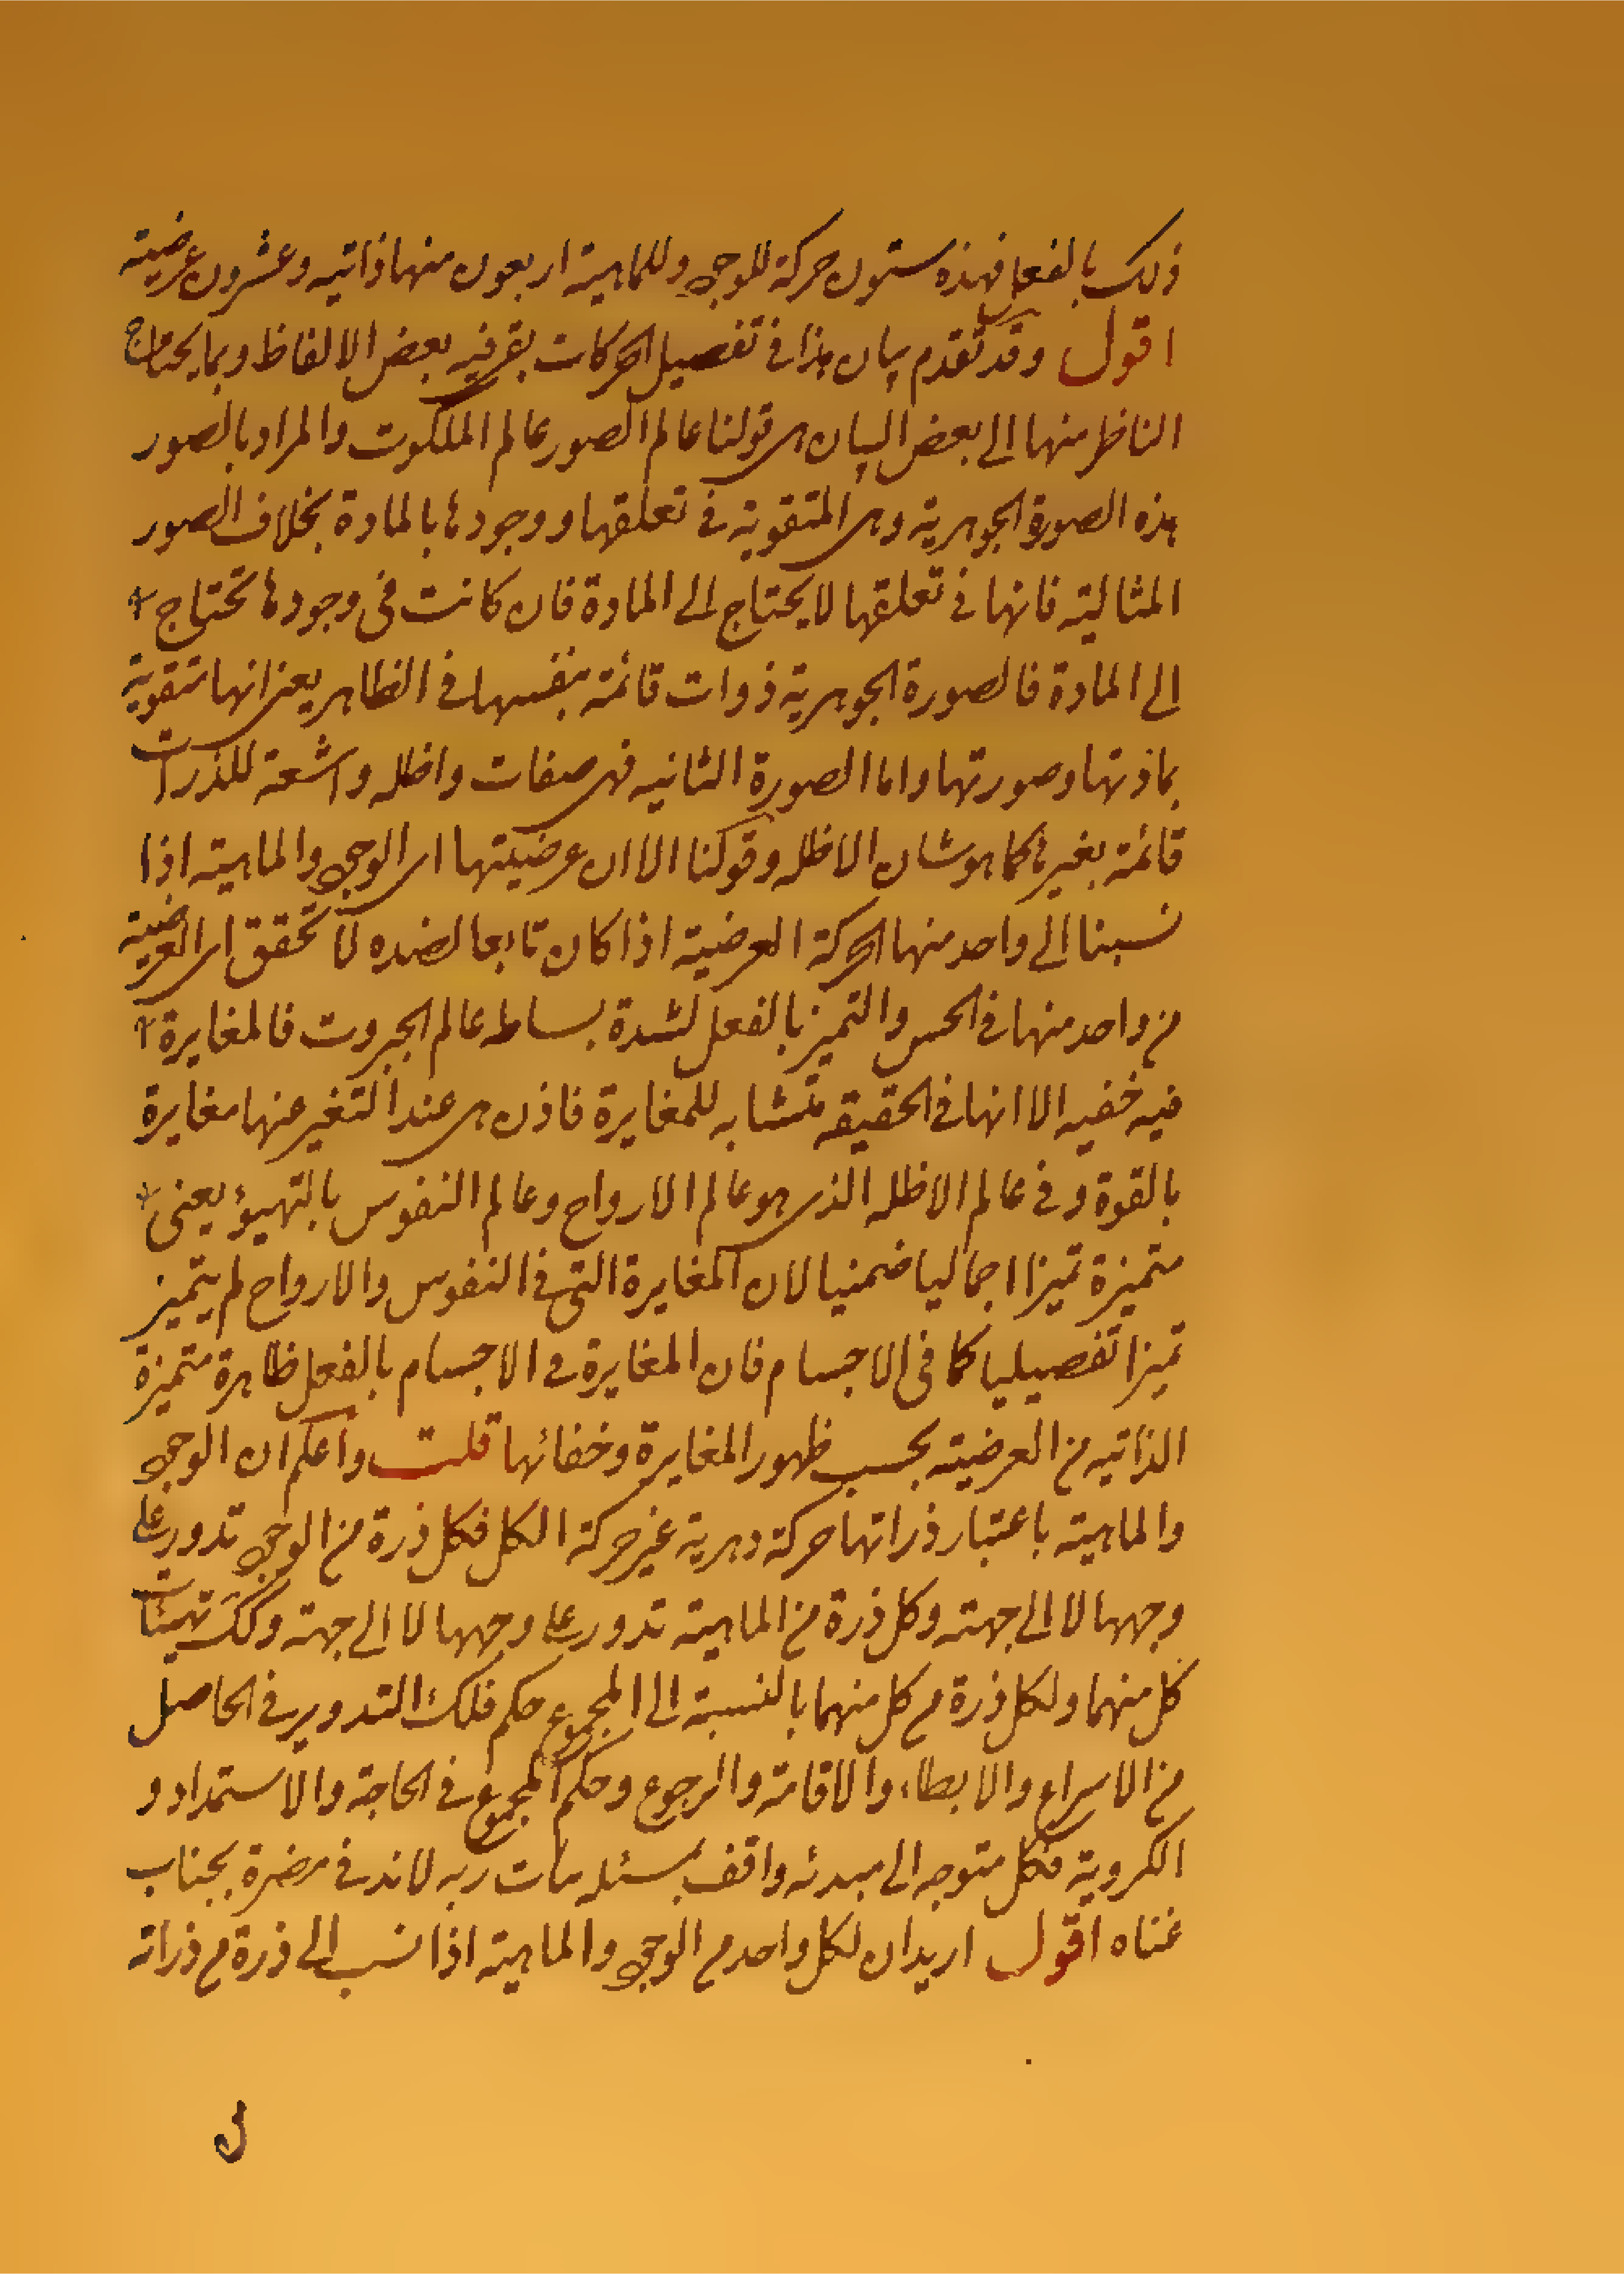 ذلك بالفعل فهذه ستون حركة للوجود وللماهية اربعون منها ذاتيه وعشرون عرضية
اقول وقد تقدم بيان هذا في تفصيل الحركات بقي فيه بعض الالفاظ ربما يحتاج
الناظر منها الى بعض البيان هي قولنا عالم الصور عالم الملكوت والمراد بالصور
هذه الصورة الجوهرية وهي المتقوية في تعلقها ووجودها بالمادة بخلاف الصور
المثالية فانها في تعلقها لا يحتاج الى المادة فان كانت في وجودها تحتاج
الى المادة فالصورة الجوهرية ذوات قائمة بنفسها في الظاهر يعني انها متقوية
بمادتها وصورتها واما الصورة الثانيه فهي صفات واظله واشعة للذرات
قائمة بغيرها كما هو شان الاظله وقولنا الا ان عرضيتها اي الوجود والماهية اذا
نسبنا الى واحد منها الحركة العرضية اذا كان تابعا لضده لما تحقق اي العرضية
من واحد منها في الحس والتميز بالفعل لشدة بساطه عالم الجبروت فالمغايرة
فيه خفيه الا انها في الحقيقه متشابه للمغايرة فاذن هي عند التغير عنها مغايرة
بالقوة وفي عالم الاظله الذي هو عالم الارواح وعالم النفوس بالتهيؤ يعني
متميزة تميزا اجماليا ضمنيا لان المغايرة التي في النفوس والارواح لم يتميز
تميزا تفصيليا كما في الاجسام فان المغايرة في الاجسام بالفعل ظاهرة متميزة
الذاتيه من العرضية بحسب ظهور المغايرة وخفائها قلت واعلم ان الوجود
والماهية باعتبار ذراتها حركة دهرية غير حركة الكل فكل ذرة من الوجود تدور على
وجهها لا الى جهته وكل ذرة من الماهية تدور على وجهها لا الى جهة وكك تهيئات
كل منهما ولكل ذرة من كل منهما بالنسبة الى المجموع حكم فلك التدوير في الحاصل
من الاسراع والابطاء والاقامة والرجوع وحكم المجموع في الحاجة والاستمداد و
الكروية فكل متوجه الى مبدئه واقف بمسئله بباب ربه لائذ في بجناب
غناه اقول اريد ان لكل واحد من الوجود والماهية اذا نسب الى ذرة من ذراته